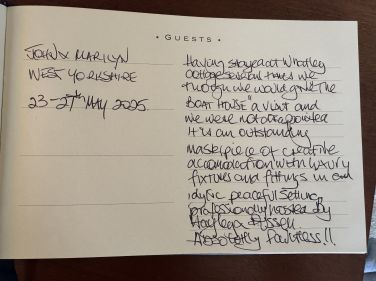 • GUESTS •
JOHN & MARILYN
WEST YORKSHIRE
23-27th MAY 2025
Having stayed at Whatley
Cottage several times we
thought we would give "The
BOAT HOUSE" a visit and
we were not disappointed
It is an outstanding
masterpiece of creative
accomodation with luxury
fixtures and fittings in an
idylic peaceful setting
professionally hosted by
Absolutely faultless!!